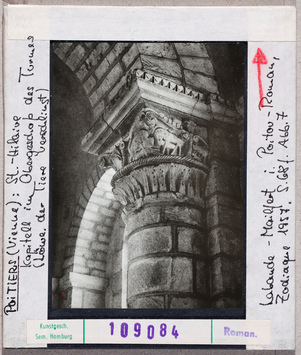 POITIERS (Vienne): St.-Hilaire
Kapitell im Obergeschoß des Turmes
(Löwe, der Tiere verschlingt)
Labande-Mailfert: Poitou-Roman,
Zodiaque 1957. S. 68f. Abb. 7
Kunstgesch.
Sem. Hamburg
109084
Roman.